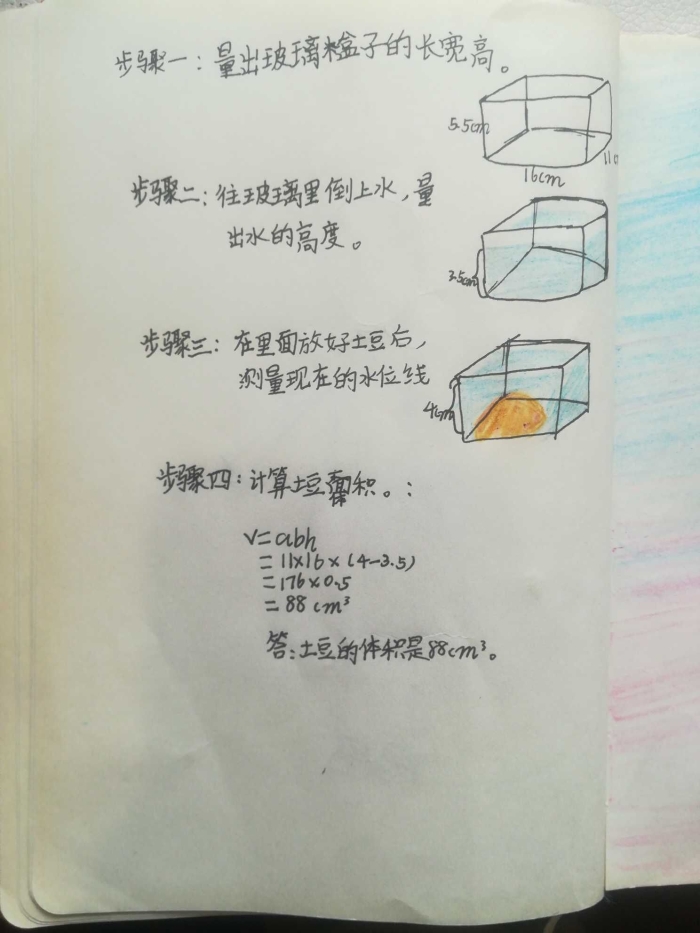 步骤一：量出玻璃盒子的长宽高。
5.5cm
11c
16cm
步骤二：往玻璃里倒上水，量
出水的高度。
3.5cm
步骤三：在里面放好土豆后，
测量现在的水位线
4cm
步骤四：计算土豆体积。：
V=abh
=11×16×(4-3.5)
=176×0.5
=88cm³
答：土豆的体积是88cm³。